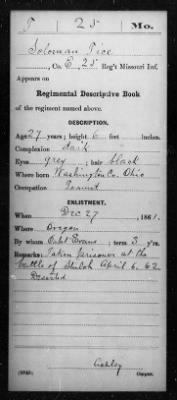 T 25 Mo.
Soloman Tice
, Co. E, 25 Reg't Missouri Inf.
Appears on
Regimental Descriptive Book
of the regiment named above.
DESCRIPTION.
Age 27 years; height 6 feet inches.
Complexion dark
Eyes grey; hair black
Where born Washington Co. Ohio
Occupation
ENLISTMENT.
When Dec 27, 1861.
Where Oregon
By whom Evans; term 3 y'rs.
Remarks: Taken prisoner at the
battle of Shiloh April 6. 62
Deserted
Ashley
Copyist.